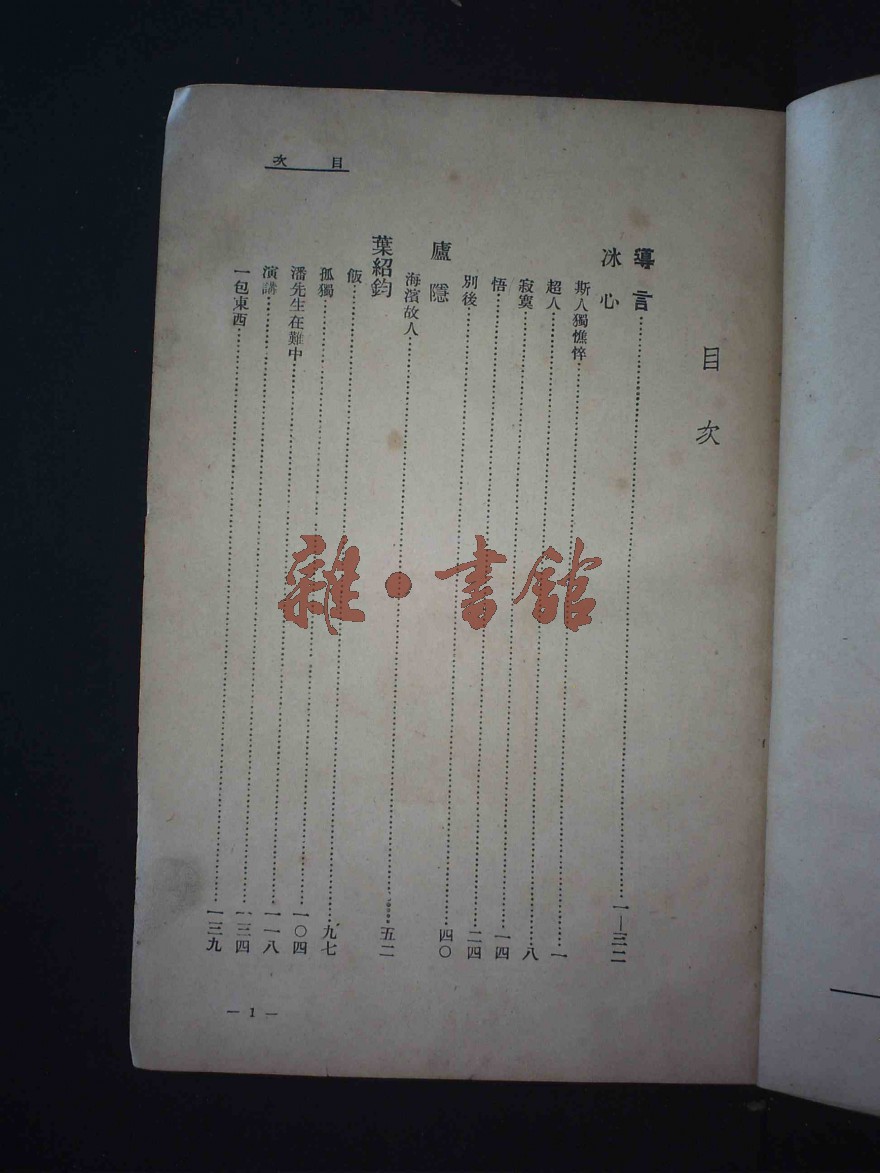 目 次
目 次
導言……一—三二
冰心
斯人獨憔悴……一
超人……八
寂寞……一四
悟……二四
別後……四〇
廬隱
海濱故人……五二
葉紹鈞
飯……九七
孤獨……一〇四
潘先生在難中……一一八
演講……一三四
一包東西……一三九
— 1 —
雜·書館